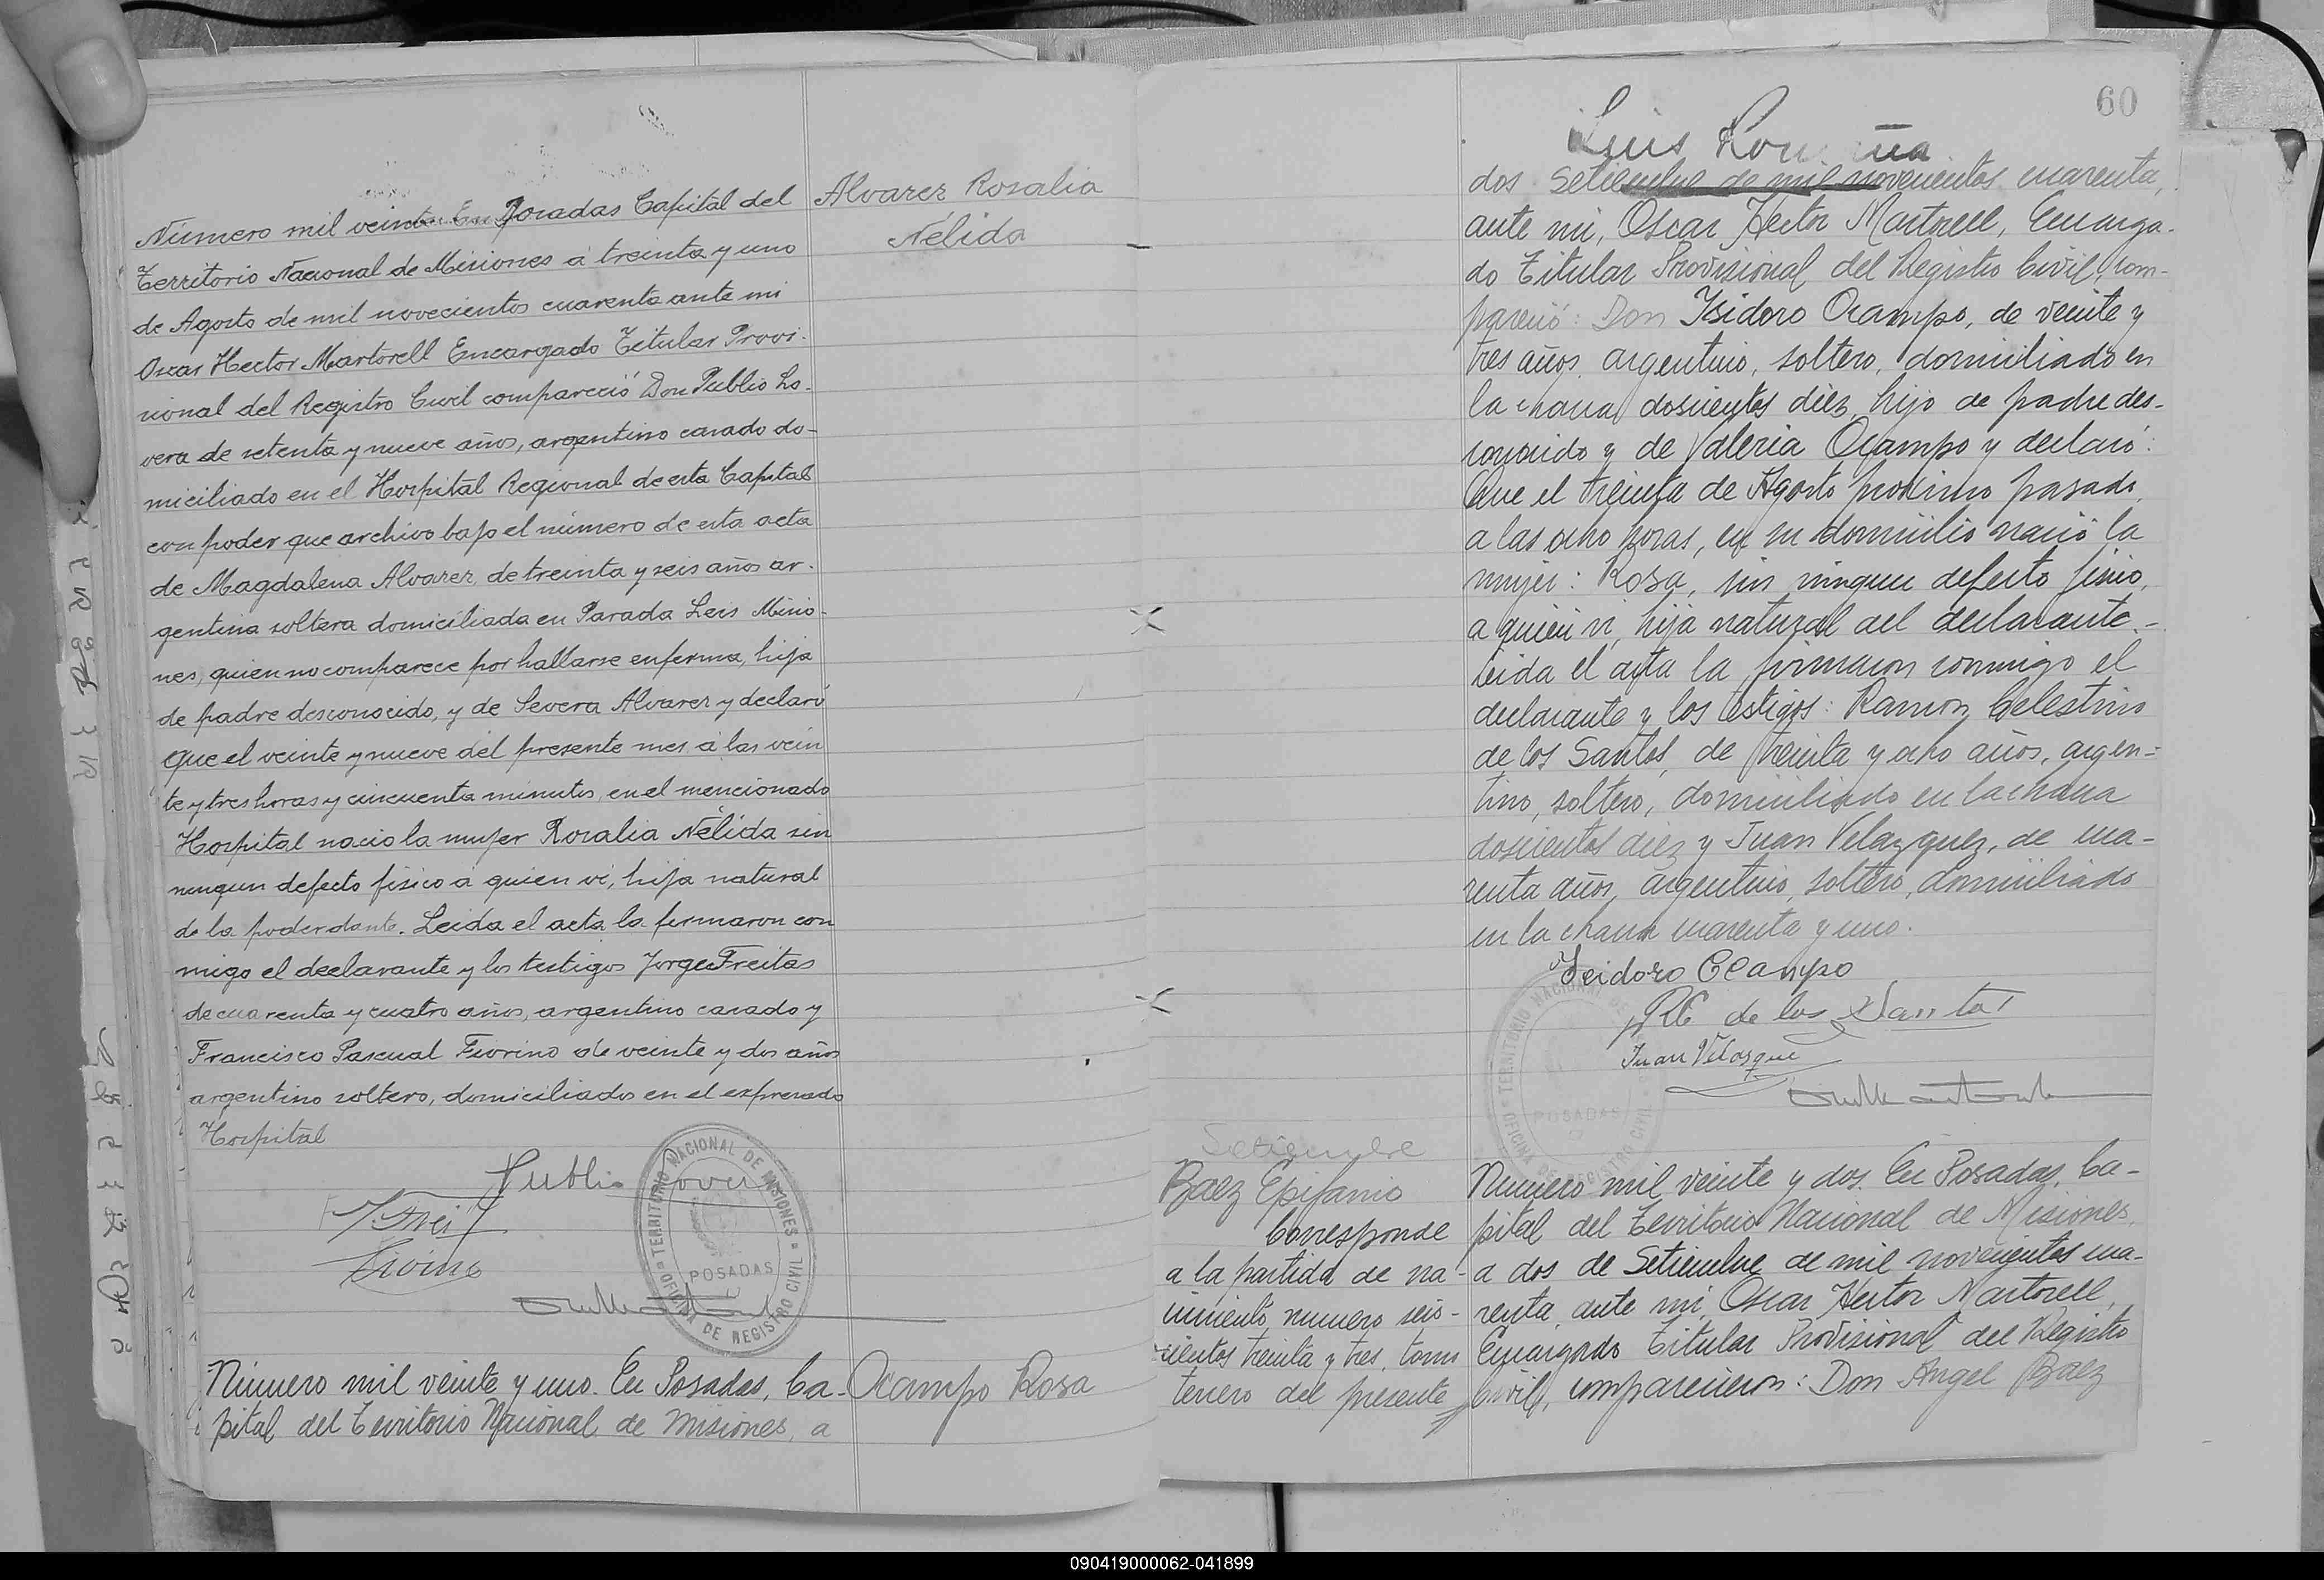 Número mil veinte En Posadas Capital del
Territorio Nacional de Misiones a treinta y uno
de Agosto de mil novecientos cuarenta ante mi
Oscar Hector Martorell Encargado Titular Provi-
sional del Registro Civil compareció Don Publio Lo-
vera de setenta y nueve años, argentino casado do-
miciliado en el Hospital Regional de esta Capital
con poder que archivo bajo el número de esta acta
de Magdalena Alvarez, de treinta y seis años ar-
gentina soltera domiciliada en Parada Leis Misio-
nes, quien no comparece por hallarse enferma, hija
de padre desconocido, y de Severa Alvarez y declaró
que el veinte y nueve del presente mes a las vein
te y tres horas y cincuenta minutos, en el mencionado
Hospital nació la mujer Rosalia Nélida sin
ningun defecto físico a quien vi, hija natural
de la poderdante. Leida el acta la firmaron con
migo el declarante y los testigos Jorge Freitas
de cuarenta y cuatro años, argentino casado y
Francisco Pascual Fiorino de veinte y dos años
argentino soltero, domiciliados en el expresado
Hospital
Alvarez Rosalia
Nélida
Publio Lovera
J. Frei
Fiorino
TERRITORIO NACIONAL DE MISIONES
POSADAS
OFICINA DE REGISTRO CIVIL
Número mil veinte y uno. En Posadas, Ca-
pital del Territorio Nacional de Misiones, a
Ocampo Rosa
60
Luis
dos Setiembre de mil novecientos cuarenta,
ante mi, Oscar Hector Martorell, Encarga-
do Titular Provisional del Registro Civil, com-
pareció: Don Isidoro Ocampo, de veinte y
tres años, argentino, soltero, domiciliado en
la chacra doscientos diez, hijo de padre des-
conocido y de Valeria Ocampo y declaró:
Que el treinta de Agosto próximo pasado,
a las ocho horas, en su domicilio nació la
mujer: Rosa, sin ningun defecto físico,
a quien vi, hija natural del declarante.-
Leida el acta la firmaron conmigo el
declarante y los testigos: Ramon Celestino
de los Santos, de treinta y ocho años, argen-
tino, soltero, domiciliado en la chacra
doscientos diez y Juan Velazquez, de cua-
renta años, argentino, soltero, domiciliado
en la chacra cuarenta y uno.
Isidoro Ocampo
RC de los Santos
Juan Velasque
TERRITORIO NACIONAL DE
POSADAS
OFICINA DE REGISTRO CIVIL
Setiembre
Baez Epifanio
Corresponde
a la partida de na-
cimiento numero seis-
cientos treinta y tres, tomo
tercero del presente
Número mil veinte y dos. En Posadas, Ca-
pital del Territorio Nacional de Misiones,
a dos de Setiembre de mil novecientos cua-
renta, ante mi, Oscar Hector Martorell,
Encargado Titular Provisional del Registro
Civil, comparecieron: Don Angel Baez
090419000062-041899